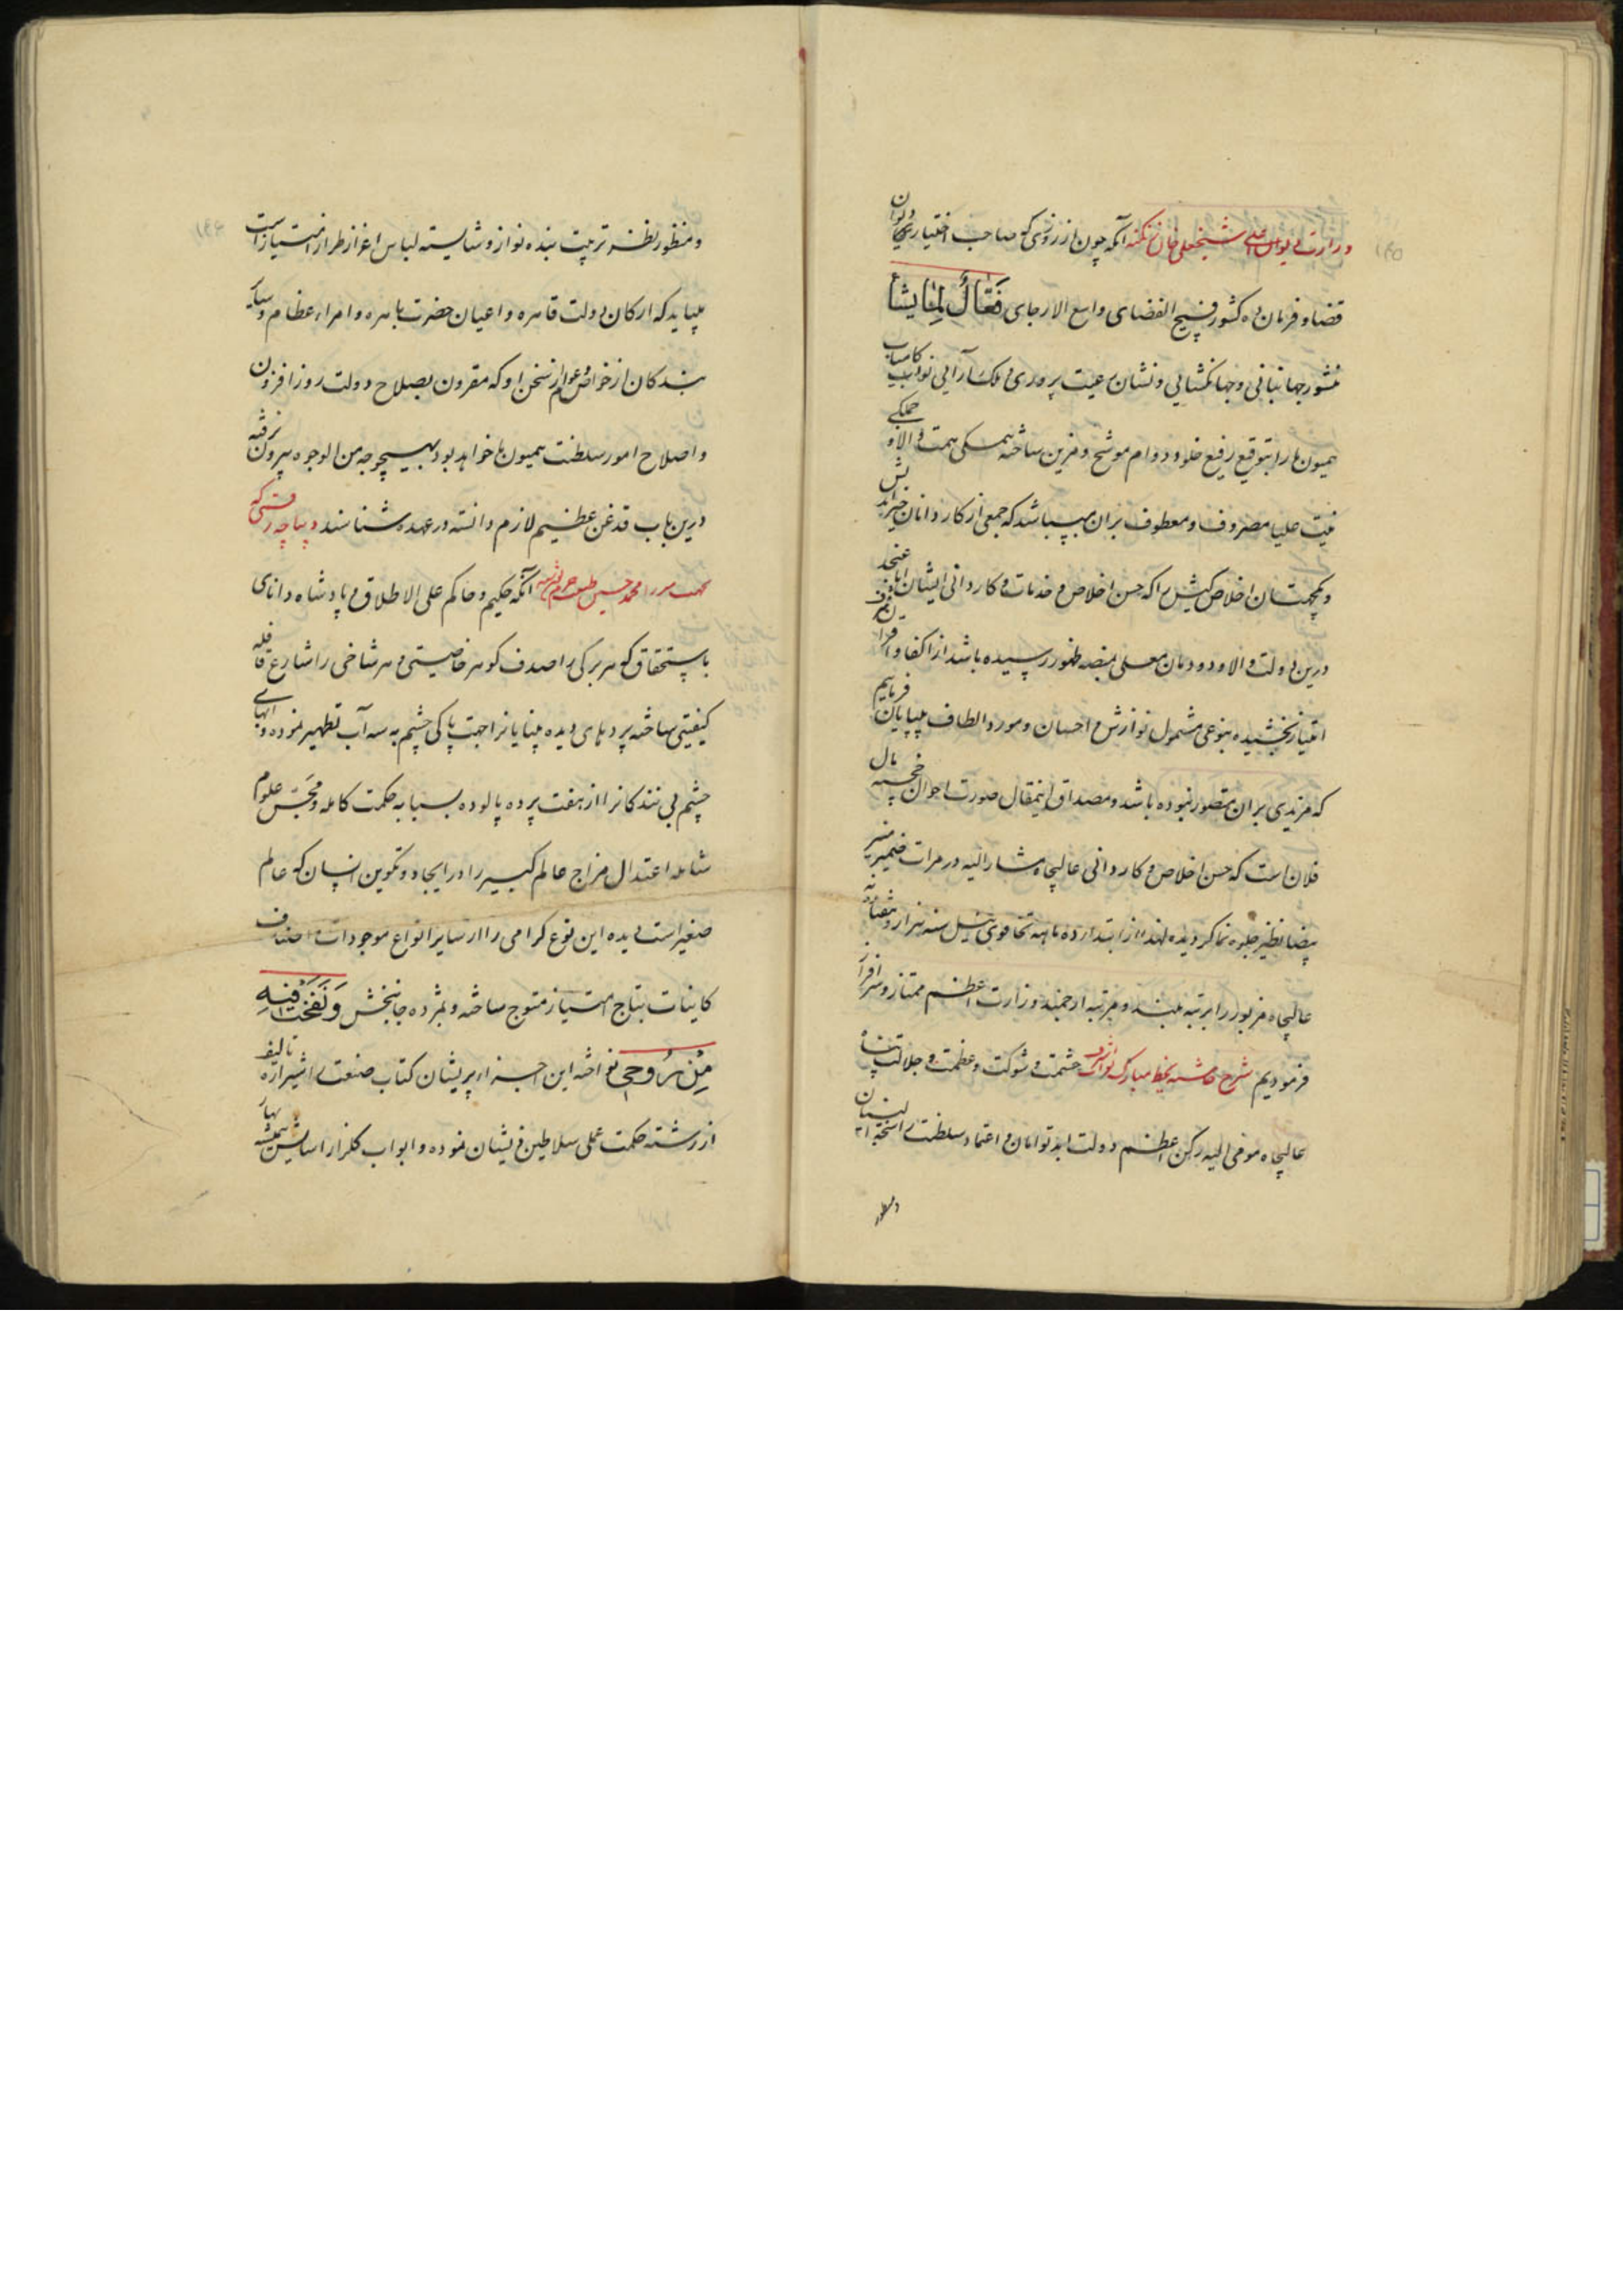 وزارت دیوان اعلی شیخعلی خان زنکنه آنکه چون از روزی که صاحب اختیار دیوان
قضا و فرمان ده کشور فسیح الفضای واسع الارجای فَعّالٌ لِمٰا یشٰأ
منشور جهانبانی و جهانکشایی و نشان رعیت پروری و ملک آرایی نواب کامیاب
همیون ما را بتوقیع رفیع خلود و دوام موشح و مزین ساخته همکی همت والا و جملکی
نیت علیا مصروف و معطوف بران میباشد که جمعی از کاردانان
و یکجهتان اخلاص کیش را که حسن اخلاص و خدمات و کاردانی ایشان
درین دولت والا و دودمان معلی بمنصه ظهور رسیده باشد از اکفا و اقران
امتیاز بخشیده بنوعی مشمول نوازش و احسان و مورد الطاف بیپایان فرماییم
که مزیدی بران متصور نبوده باشد و مصداق اینمقال صورت احوال خجسته مآل
فلان است که حسن اخلاص و کاردانی عالیجاه مشارالیه در مرات ضمیر منیر
بیضا نظیر جلوه نما کردیده لهذا از ابتدا ده ماهه تخاقوی ئیل سنه هزار و هشتاد
عالیجاه مزبور را برتبه بلند و مرتبه ارجمند وزارت اعظم ممتاز و سرافراز
فرمودیم شرح حاشیه بخط مبارک نواب اشرف حشمت و شوکت و عظمت و جلالت پناه
عالیجاه مومی الیه رکن اعظم دولت ابد توامان و اعتماد سلطنت
و منظور
و منظور نظر تربیت بنده نواز و شایسته لباس اعزاز طراز امتیاز است
میباید که ارکان دولت قاهره و اعیان حضرت باهره و امراء عظام و سایر
بندکان از خواص و عوام از سخن او که مقرون بصلاح دولت روز افزون
و اصلاح امور سلطنت همیون ما خواهد بود بهیچوجه من الوجوه بیرون نرفته
درین باب قدغن عظیم لازم دانسته در عهده شناسند دیباچه رقمی که
بجهت میرزا محمد حسین طبیب آنکه حکیم و حاکم علی الاطلاق و پادشاه دانای
باستحقاق که هر برکی را صدف کوهر خاصیتی و هر شاخی را شارع قافله
کیفیتی ساخته پردهای دیده بینایانرا جهت پاکی چشم به سه آب تطهیر نموده و
چشم بینندکانرا از هفت پرده پالوده بسبابه حکمت کامله و مجسّ علوم
شامله اعتدال مزاج عالم کبیر را در ایجاد و تکوین انسان که عالم
صغیر است دیده این نوع کرامی را از سایر انواع موجودات و اصناف
کاینات بتاج امتیاز متوج ساخته و بمژده جانبخش وَ نَفَخْتُ فیهِ
مِنْ رُوحی نواخته این اجزاء پریشان کتاب صنعت را شیرازه تالیف
از رشته حکمت عملی سلاطین ذیشان نموده و ابواب کلزار اسایش همیشه بهار